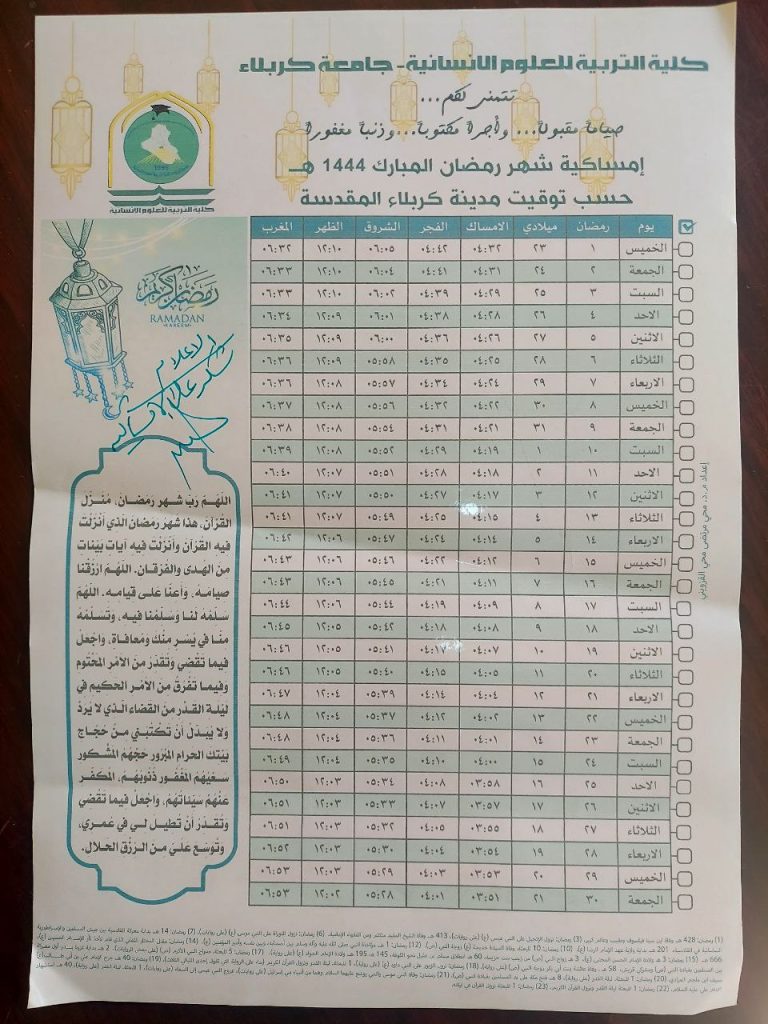 كلية التربية للعلوم الانسانية - جامعة كربلاء
تتمنى لكم...
صياماً مقبولاً... وأجراً مكتوباً... وذنباً مغفوراً
إمساكية شهر رمضان المبارك 1444 هـ
حسب توقيت مدينة كربلاء المقدسة
كلية التربية للعلوم الانسانية
رمضان كريم
RAMADAN
KAREEM
يوم رمضان ميلادي الامساك الفجر الشروق الظهر المغرب
الخميس ١ ٢٣ ٠٤:٣٢ ٠٤:٤٢ ٠٦:٠٥ ١٢:١٠ ٠٦:٣٢
الجمعة ٢ ٢٤ ٠٤:٣١ ٠٤:٤١ ٠٦:٠٤ ١٢:١٠ ٠٦:٣٣
السبت ٣ ٢٥ ٠٤:٢٩ ٠٤:٣٩ ٠٦:٠٢ ١٢:١٠ ٠٦:٣٣
الاحد ٤ ٢٦ ٠٤:٢٨ ٠٤:٣٨ ٠٦:٠١ ١٢:٠٩ ٠٦:٣٤
الاثنين ٥ ٢٧ ٠٤:٢٦ ٠٤:٣٦ ٠٦:٠٠ ١٢:٠٩ ٠٦:٣٥
الثلاثاء ٦ ٢٨ ٠٤:٢٥ ٠٤:٣٥ ٠٥:٥٨ ١٢:٠٩ ٠٦:٣٦
الاربعاء ٧ ٢٩ ٠٤:٢٤ ٠٤:٣٤ ٠٥:٥٧ ١٢:٠٨ ٠٦:٣٦
الخميس ٨ ٣٠ ٠٤:٢٢ ٠٤:٣٢ ٠٥:٥٦ ١٢:٠٨ ٠٦:٣٧
الجمعة ٩ ٣١ ٠٤:٢١ ٠٤:٣١ ٠٥:٥٤ ١٢:٠٨ ٠٦:٣٨
السبت ١٠ ١ ٠٤:١٩ ٠٤:٢٩ ٠٥:٥٢ ١٢:٠٨ ٠٦:٣٩
الاحد ١١ ٢ ٠٤:١٨ ٠٤:٢٨ ٠٥:٥١ ١٢:٠٧ ٠٦:٤٠
الاثنين ١٢ ٣ ٠٤:١٧ ٠٤:٢٧ ٠٥:٥٠ ١٢:٠٧ ٠٦:٤١
الثلاثاء ١٣ ٤ ٠٤:١٥ ٠٤:٢٥ ٠٥:٤٩ ١٢:٠٧ ٠٦:٤١
الاربعاء ١٤ ٥ ٠٤:١٤ ٠٤:٢٤ ٠٥:٤٧ ١٢:٠٦ ٠٦:٤٢
الخميس ١٥ ٦ ٠٤:١٢ ٠٤:٢٢ ٠٥:٤٦ ١٢:٠٦ ٠٦:٤٣
الجمعة ١٦ ٧ ٠٤:١١ ٠٤:٢١ ٠٥:٤٥ ١٢:٠٦ ٠٦:٤٣
السبت ١٧ ٨ ٠٤:٠٩ ٠٤:١٩ ٠٥:٤٤ ١٢:٠٦ ٠٦:٤٤
الاحد ١٨ ٩ ٠٤:٠٨ ٠٤:١٨ ٠٥:٤٢ ١٢:٠٥ ٠٦:٤٥
الاثنين ١٩ ١٠ ٠٤:٠٧ ٠٤:١٧ ٠٥:٤١ ١٢:٠٥ ٠٦:٤٦
الثلاثاء ٢٠ ١١ ٠٤:٠٥ ٠٤:١٥ ٠٥:٤٠ ١٢:٠٥ ٠٦:٤٦
الاربعاء ٢١ ١٢ ٠٤:٠٤ ٠٤:١٤ ٠٥:٣٩ ١٢:٠٤ ٠٦:٤٧
الخميس ٢٢ ١٣ ٠٤:٠٢ ٠٤:١٢ ٠٥:٣٧ ١٢:٠٤ ٠٦:٤٨
الجمعة ٢٣ ١٤ ٠٤:٠١ ٠٤:١١ ٠٥:٣٦ ١٢:٠٤ ٠٦:٤٨
السبت ٢٤ ١٥ ٠٤:٠٠ ٠٤:١٠ ٠٥:٣٥ ١٢:٠٤ ٠٦:٤٩
الاحد ٢٥ ١٦ ٠٣:٥٨ ٠٤:٠٨ ٠٥:٣٤ ١٢:٠٣ ٠٦:٥٠
الاثنين ٢٦ ١٧ ٠٣:٥٧ ٠٤:٠٧ ٠٥:٣٣ ١٢:٠٣ ٠٦:٥١
الثلاثاء ٢٧ ١٨ ٠٣:٥٥ ٠٤:٠٥ ٠٥:٣٢ ١٢:٠٣ ٠٦:٥١
الاربعاء ٢٨ ١٩ ٠٣:٥٤ ٠٤:٠٤ ٠٥:٣٠ ١٢:٠٣ ٠٦:٥٢
الخميس ٢٩ ٢٠ ٠٣:٥٣ ٠٤:٠٣ ٠٥:٢٩ ١٢:٠٣ ٠٦:٥٣
الجمعة ٣٠ ٢١ ٠٣:٥١ ٠٤:٠١ ٠٥:٢٨ ١٢:٠٢ ٠٦:٥٣
إعداد م.د. محي مرتضى محي القزويني
اللهم رب شهر رمضان، منزل
القرآن، هذا شهر رمضان الذي أنزلت
فيه القرآن وأنزلت فيه آيات بينات
من الهدى والفرقان. اللهم ارزقنا
صيامه، وأعنا على قيامه. اللهم
سلمه لنا وسلمنا فيه، وتسلمه
منا في يسر منك ومعافاة، واجعل
فيما تقضي وتقدر من الأمر المحتوم
وفيما تفرق من الأمر الحكيم في
ليلة القدر من القضاء الذي لا يرد
ولا يبدل أن تكتبني من حجاج
بيتك الحرام المبرور حجهم المشكور
سعيهم المغفور ذنوبهم، المكفر
عنهم سيئاتهم، واجعل فيما تقضي
وتقدر أن تطيل لي في عمري،
وتوسع علي من الرزق الحلال.